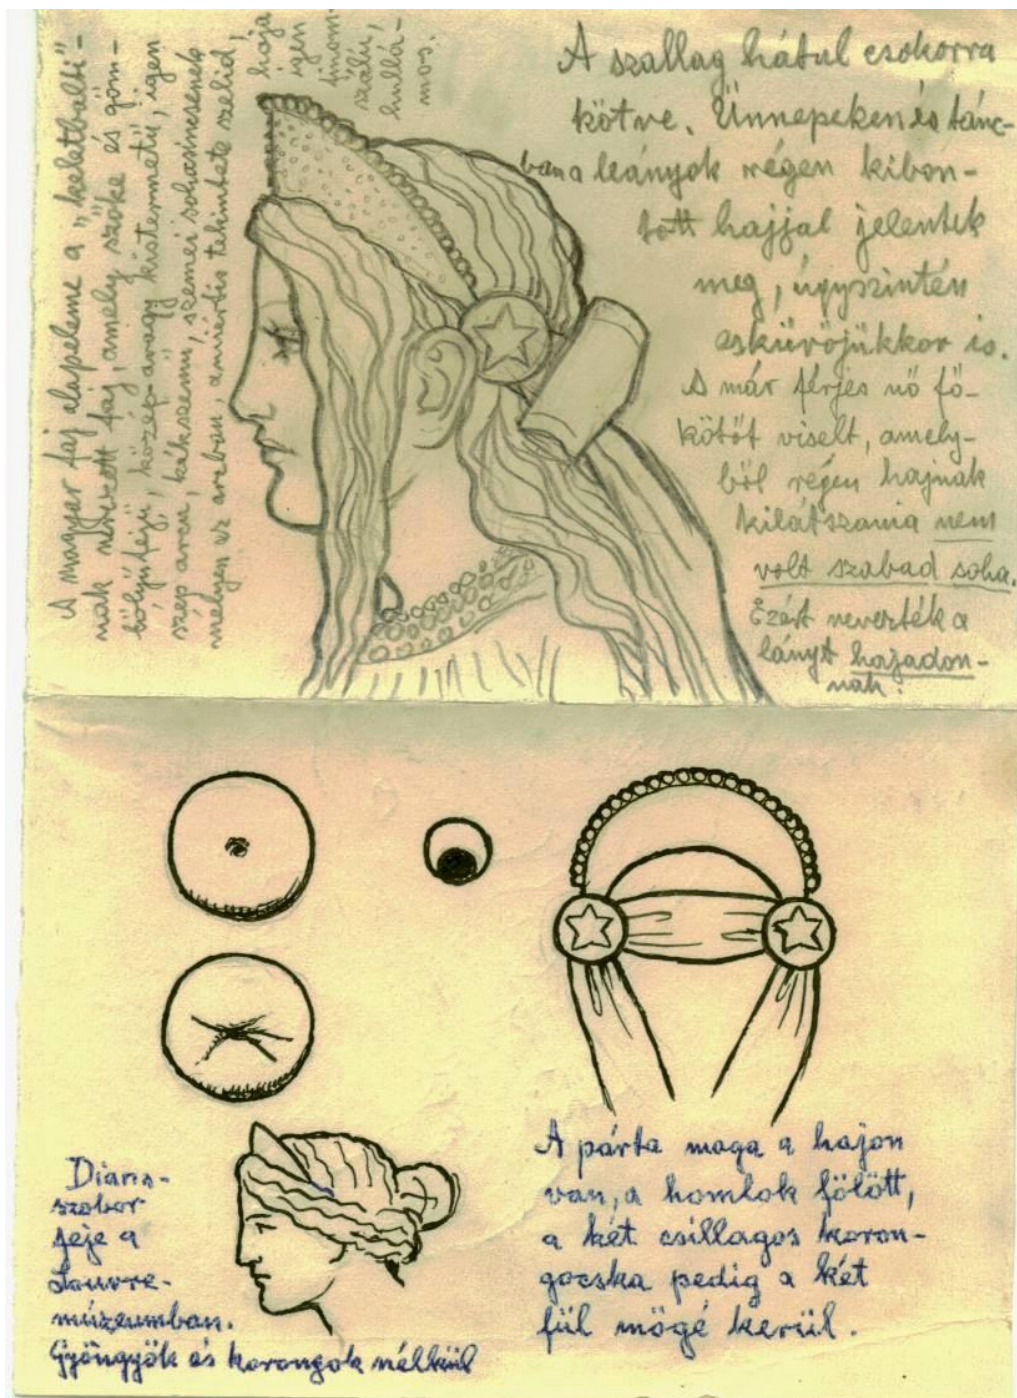 A magyar faj alapeleme a „keletbalti"-
nak nevezett faj, amely szőke és göm-
bölyűfejű, közép- avagy kistermetű, igen
szép arcu, kékszemű, szemei sohasincsenek
mélyen az arcban, amiértis tekintete szelid,
haja
igen
finom-
szálu,
hullá-
mos.
A szallag hátul csokorra
kötve. Ünnepeken és tánc-
ban a leányok régen kibon-
tott hajjal jelentek
meg, úgyszintén
esküvőjükkor is.
A már férjes nő fő-
kötőt viselt, amely-
ből régen hajnak
kilátszania nem
volt szabad soha.
Ezért nevezték a
lányt hajadon-
nak.
Diana-
szobor
feje a
Louvre-
múzeumban.
Gyöngyök és korongok nélkül
A párta maga a hajon
van, a homlok fölött,
a két csillagos koron-
gocska pedig a két
fül mögé kerül.